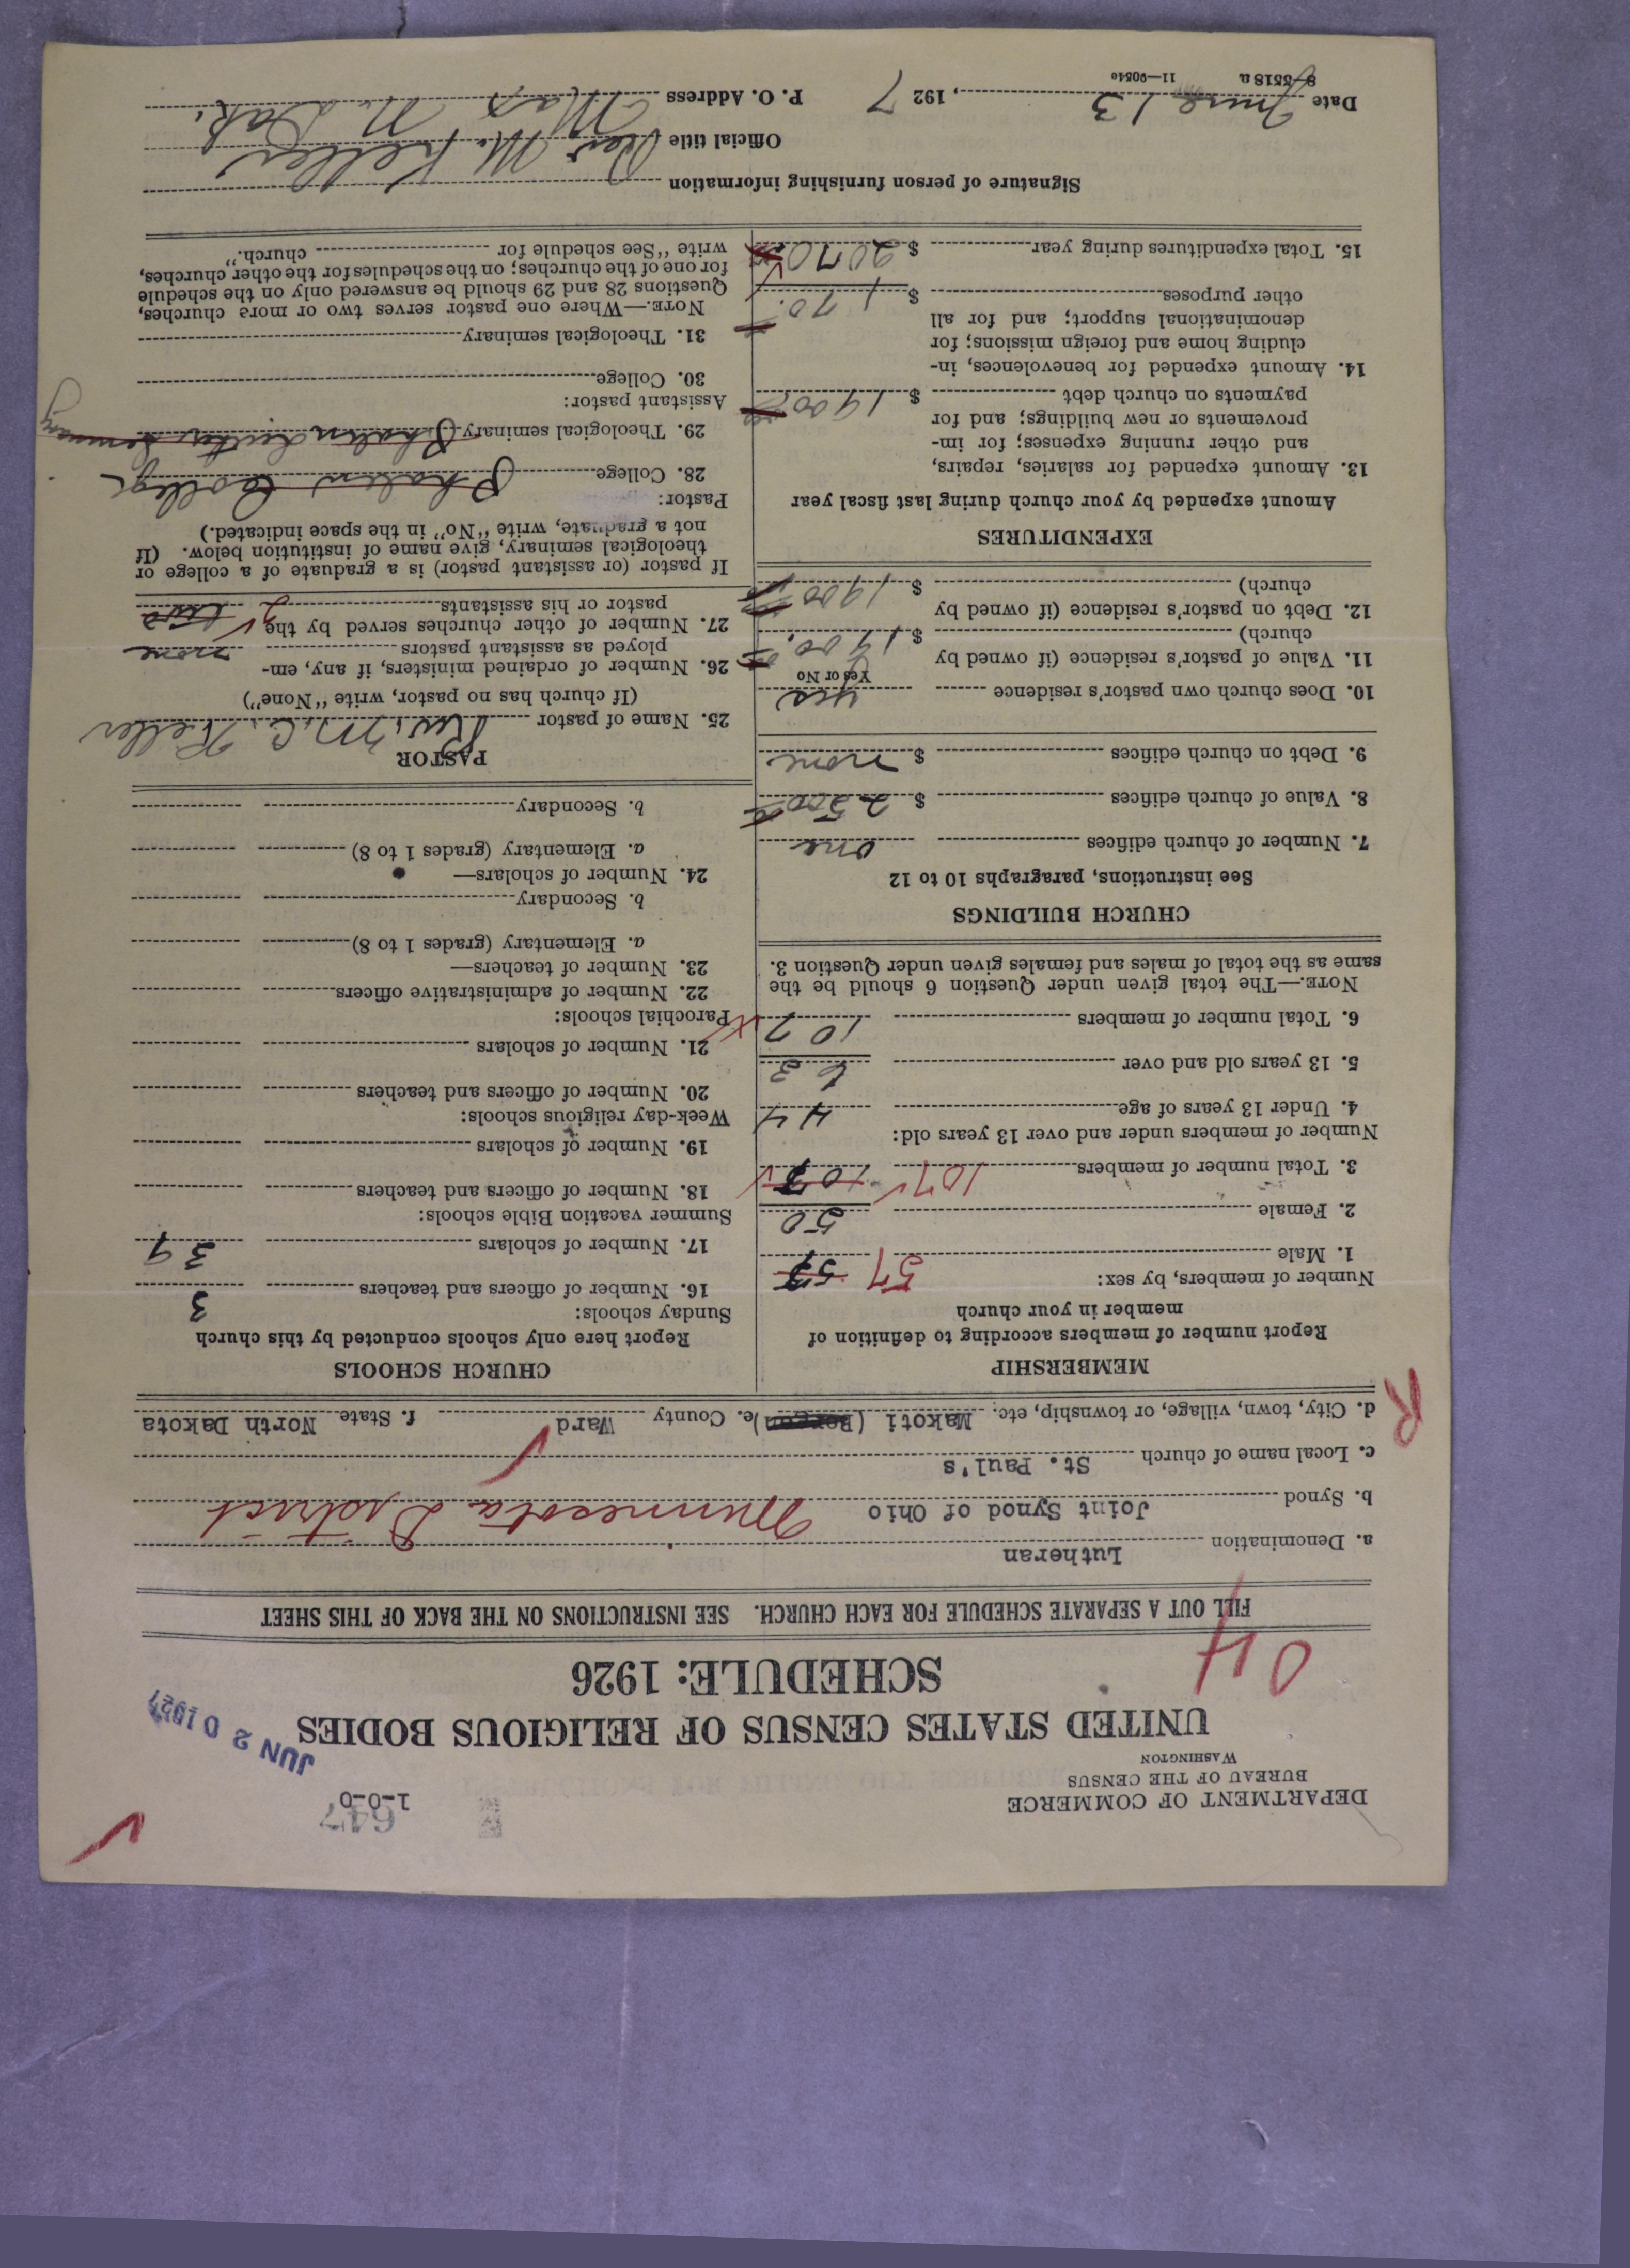 DEPARTMENT OF COMMERCE
BUREAU OF THE CENSUS
WASHINGTON
647
1-0-0
JUN 20 1927
UNITED STATES CENSUS OF RELIGIOUS BODIES
SCHEDULE: 1926
04
FILL OUT A SEPARATE SCHEDULE FOR EACH CHURCH. SEE INSTRUCTIONS ON THE BACK OF THIS SHEET
a. Denomination Lutheran
b. Synod Joint Synod of Ohio Minnesota District
c. Local name of church St. Paul's
d. City, town, village, or township, etc. Makoti ( ) e. County Ward f. State North Dakota
R
MEMBERSHIP
Report number of members according to definition of
member in your church
Number of members, by sex:
1. Male 57 57
2. Female 50
3. Total number of members 107 107
Number of members under and over 13 years old:
4. Under 13 years of age 44
5. 13 years old and over 63
6. Total number of members 107
NOTE.—The total given under Question 6 should be the
same as the total of males and females given under Question 3.
CHURCH BUILDINGS
See instructions, paragraphs 10 to 12
7. Number of church edifices one
8. Value of church edifices $ 2500
9. Debt on church edifices $ none
10. Does church own pastor's residence yes
Yes or No
11. Value of pastor's residence (if owned by
church) $ 1900.
12. Debt on pastor's residence (if owned by
church) $ 1900
EXPENDITURES
Amount expended by your church during last fiscal year
13. Amount expended for salaries, repairs,
and other running expenses; for im-
provements or new buildings; and for
payments on church debt $ 1900
14. Amount expended for benevolences, in-
cluding home and foreign missions; for
denominational support; and for all
other purposes $ 170.
15. Total expenditures during year $ 2070
CHURCH SCHOOLS
Report here only schools conducted by this church
Sunday schools:
16. Number of officers and teachers 3
17. Number of scholars 39
Summer vacation Bible schools:
18. Number of officers and teachers
19. Number of scholars
Week-day religious schools:
20. Number of officers and teachers
21. Number of scholars
Parochial schools:
22. Number of administrative officers
23. Number of teachers—
a. Elementary (grades 1 to 8)
b. Secondary
24. Number of scholars—
a. Elementary (grades 1 to 8)
b. Secondary
PASTOR
25. Name of pastor Rev. M. C. Keller
(If church has no pastor, write "None")
26. Number of ordained ministers, if any, em-
ployed as assistant pastors none
27. Number of other churches served by the
pastor or his assistants 2 two
If pastor (or assistant pastor) is a graduate of a college or
theological seminary, give name of institution below. (If
not a graduate, write "No" in the space indicated.)
Pastor:
28. College Phalen College
29. Theological seminary Phalen Luther Seminary
Assistant pastor:
30. College
31. Theological seminary
NOTE.—Where one pastor serves two or more churches,
Questions 28 and 29 should be answered only on the schedule
for one of the churches; on the schedules for the other churches,
write "See schedule for church."
Signature of person furnishing information
Official title Rev M. Keller
Date June 13, 1927 P. O. Address Max, N. Dak.
8-5518a 11-9054o